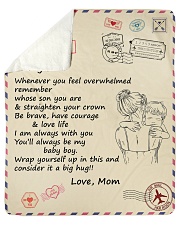 Whenever you feel overwhelmed
remember
whose son you are
& straighten your crown
Be brave, have courage
& love life
I am always with you
You'll always be my
baby boy.
Wrap yourself up in this and
consider it a big hug!!
Love, Mom